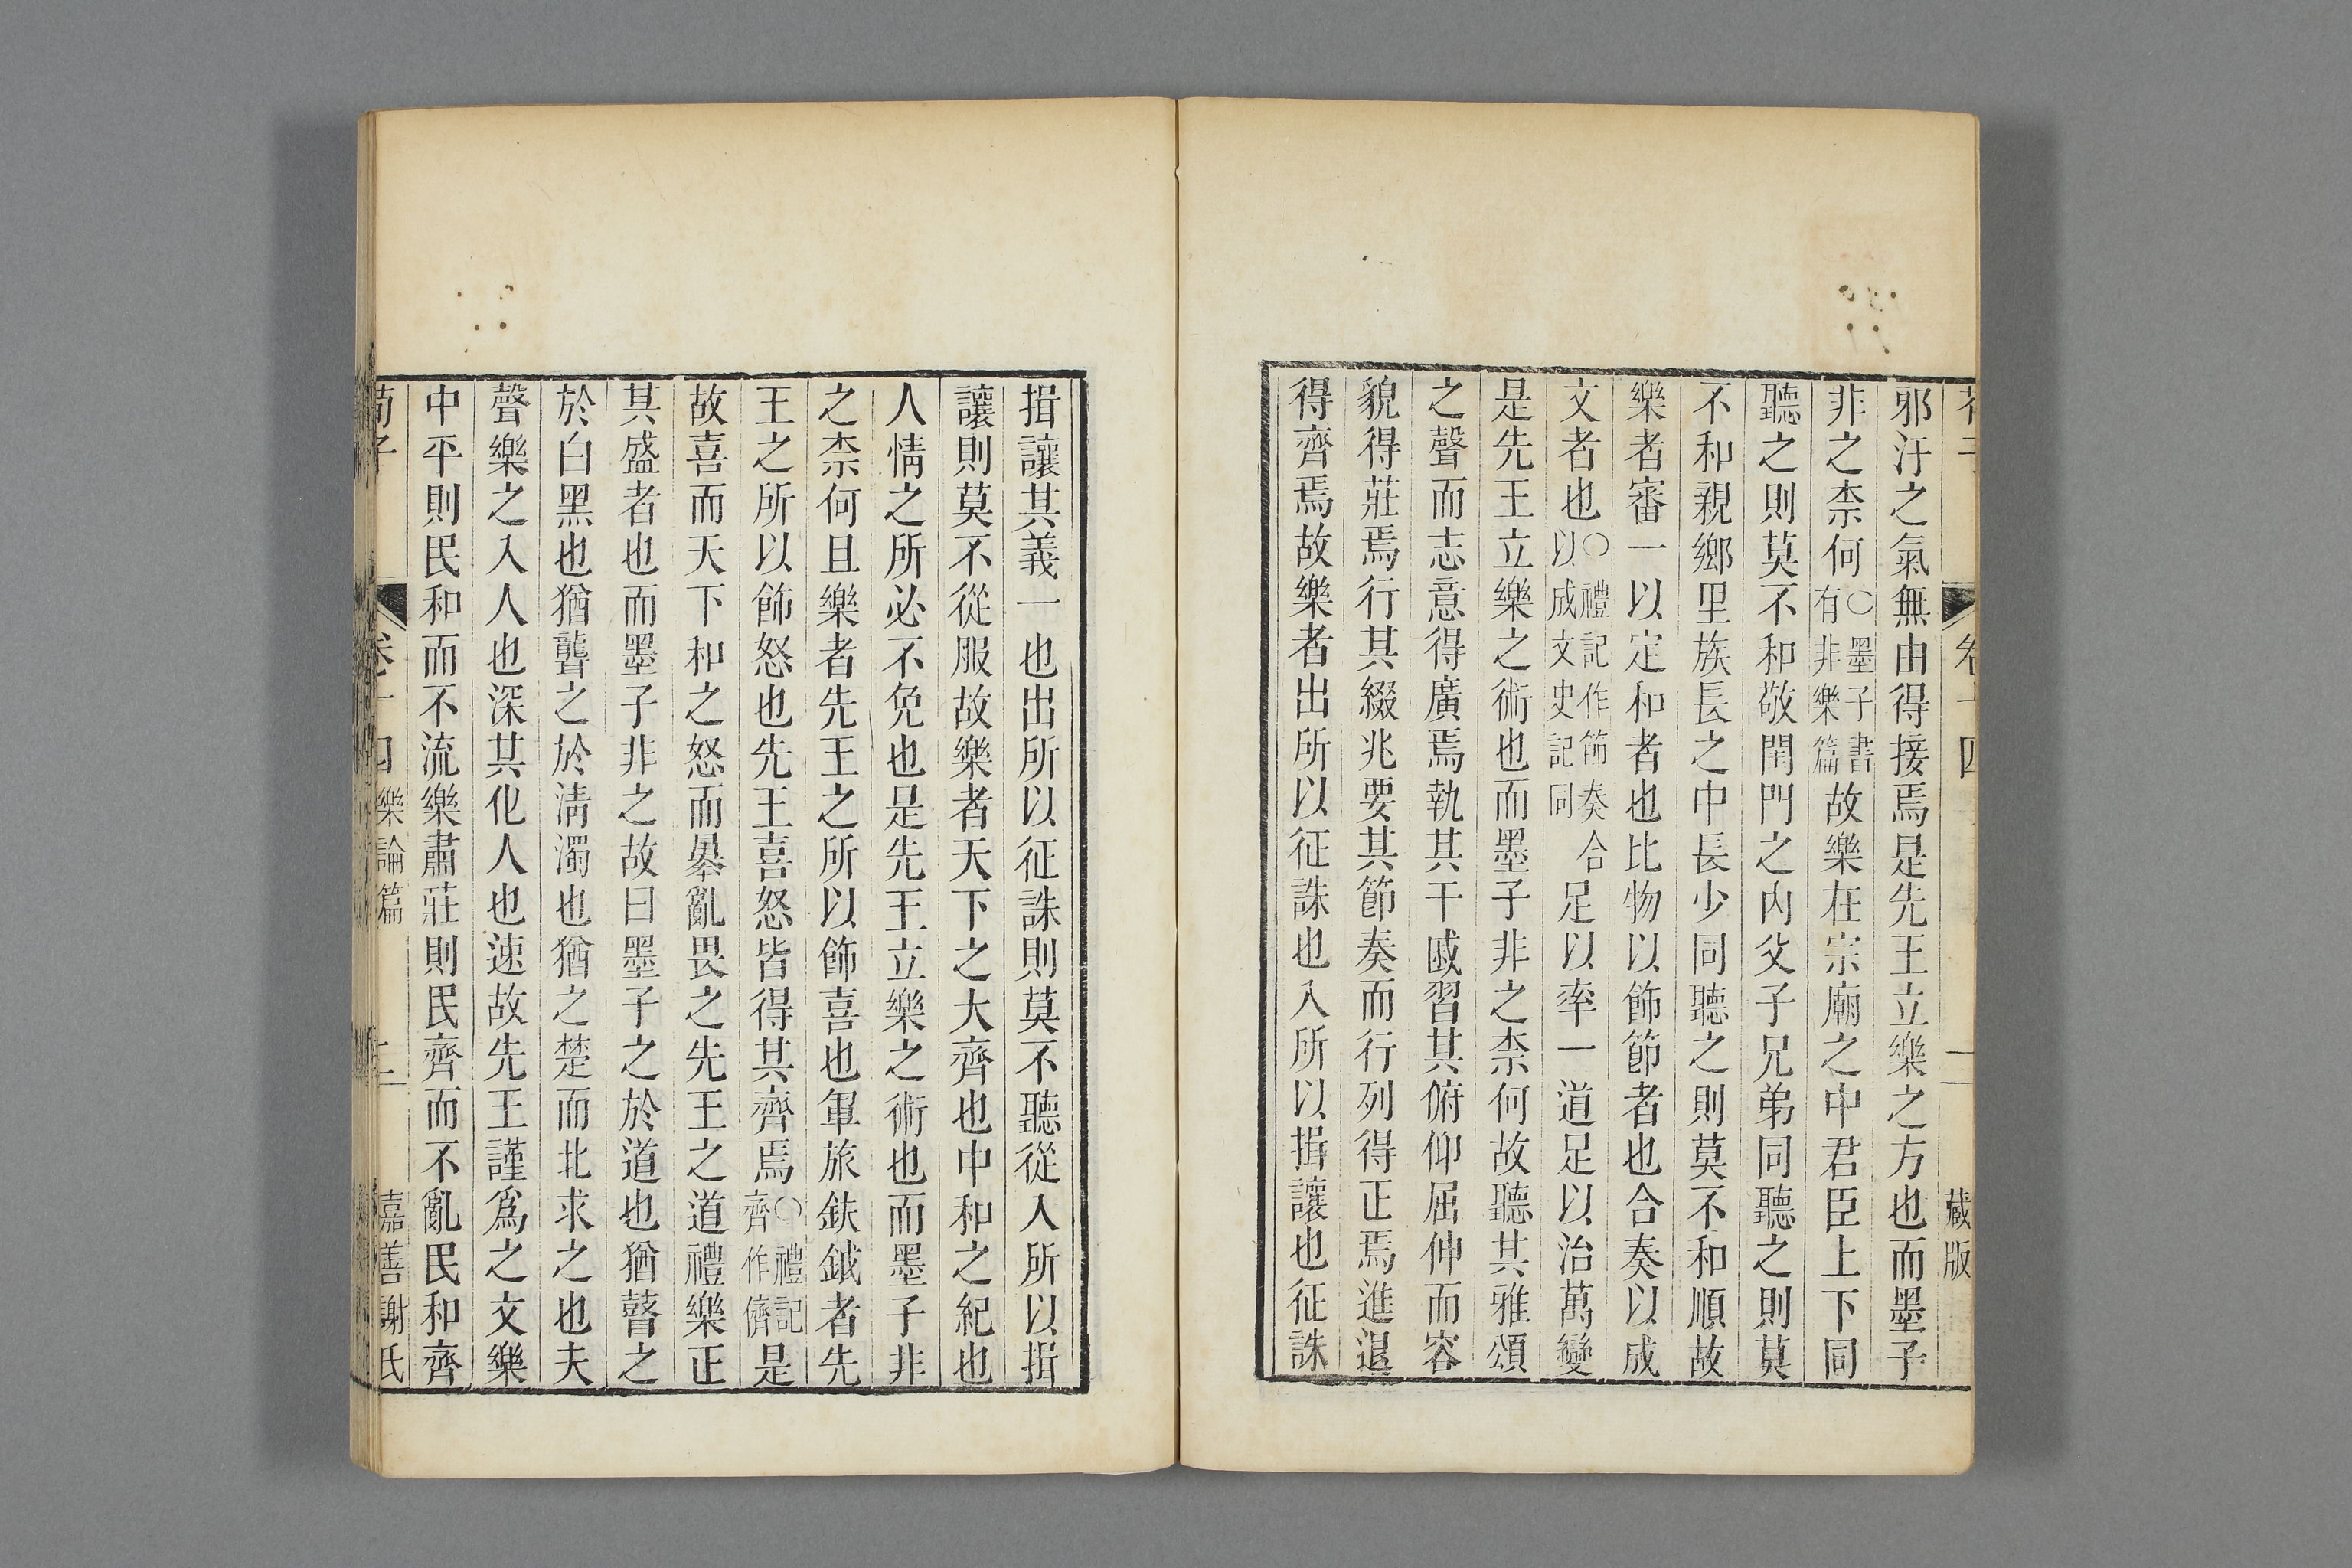 荀子 卷十四 二 藏版
邪汙之氣無由得接焉是先王立樂之方也而墨子
非之柰何○墨子書有非樂篇故樂在宗廟之中君臣上下同
聽之則莫不和敬閨門之內父子兄弟同聽之則莫
不和親鄉里族長之中長少同聽之則莫不和順故
樂者審一以定和者也比物以飾節者也合奏以成
文者也○禮記作節奏合以成文史記同足以率一道足以治萬變
是先王立樂之術也而墨子非之柰何故聽其雅頌
之聲而志意得廣焉執其干戚習其俯仰屈伸而容
貌得莊焉行其綴兆要其節奏而行列得正焉進退
得齊焉故樂者出所以征誅也入所以揖讓也征誅
揖讓其義一也出所以征誅則莫不聽從入所以揖
讓則莫不從服故樂者天下之大齊也中和之紀也
人情之所必不免也是先王立樂之術也而墨子非
之柰何且樂者先王之所以飾喜也軍旅鈇鉞者先
王之所以飾怒也先王喜怒皆得其齊焉○禮記齊作儕是
故喜而天下和之怒而暴亂畏之先王之道禮樂正
其盛者也而墨子非之故曰墨子之於道也猶瞽之
於白黑也猶聾之於淸濁也猶之楚而北求之也夫
聲樂之入人也深其化人也速故先王謹爲之文樂
中平則民和而不流樂肅莊則民齊而不亂民和齊
荀子 卷十四 樂論篇 二 嘉善謝氏